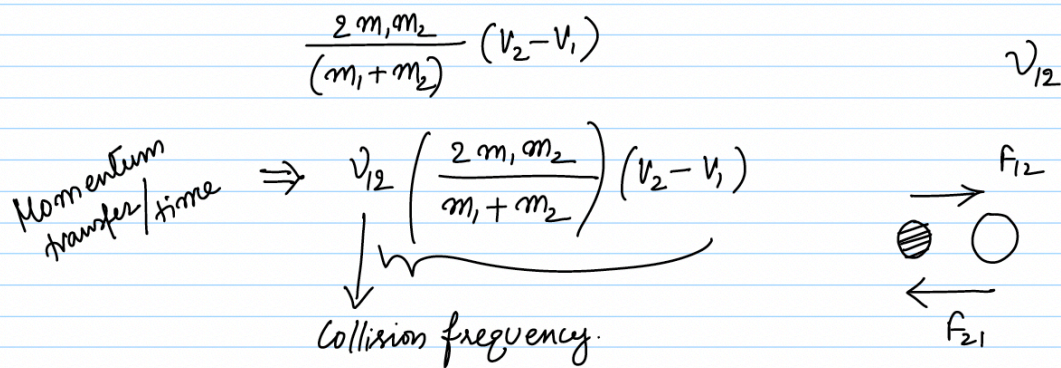 2 m₁m₂ / (m₁+m₂) (V₂-V₁)
ν₁₂
Momentum transfer/time ⇒ ν₁₂ (2 m₁m₂ / m₁+m₂) (V₂-V₁)
F₁₂
F₂₁
Collision frequency.